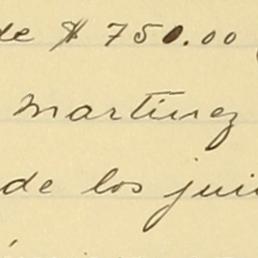 de $ 750.00 (
Martínez
de los jui